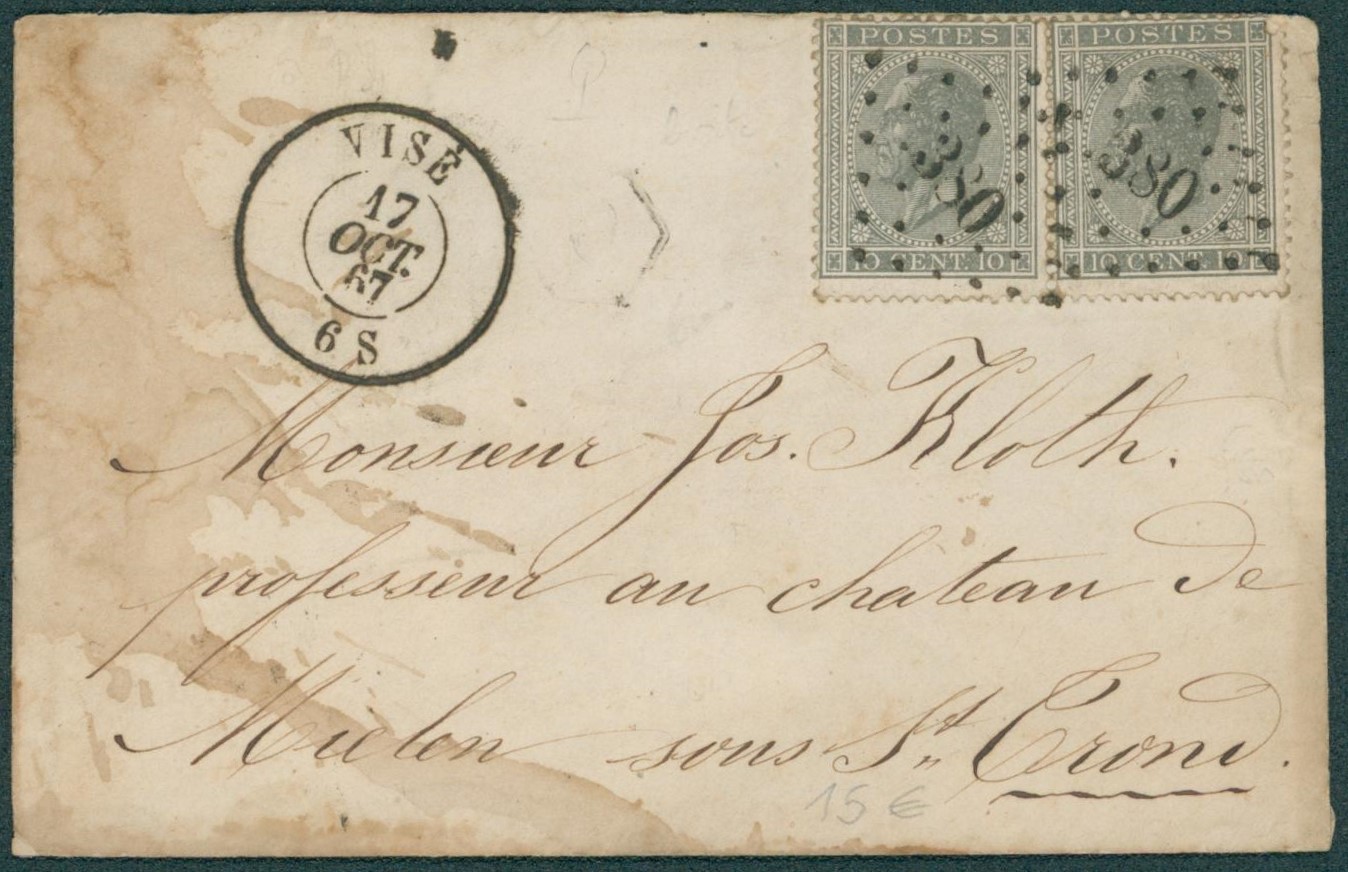 POSTES POSTES
380 380
10 CENT. 10 10 CENT. 10
VISÉ
17
OCT.
67
6 S
Monsieur Jos. Kloth.
professeur au château de
Mielen sous St. Trond.
15 €